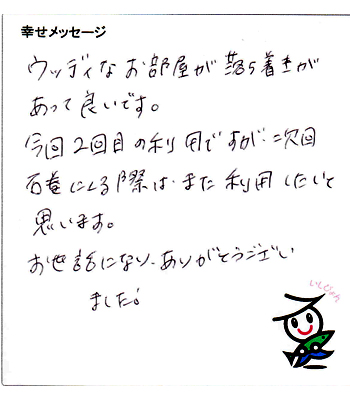 幸せメッセージ
ウッディなお部屋が落ち着きが
あって良いです。
今回2回目の利用ですが、次回
石巻にくる際は、また利用したいと
思います。
お世話になり、ありがとうござい
ました!